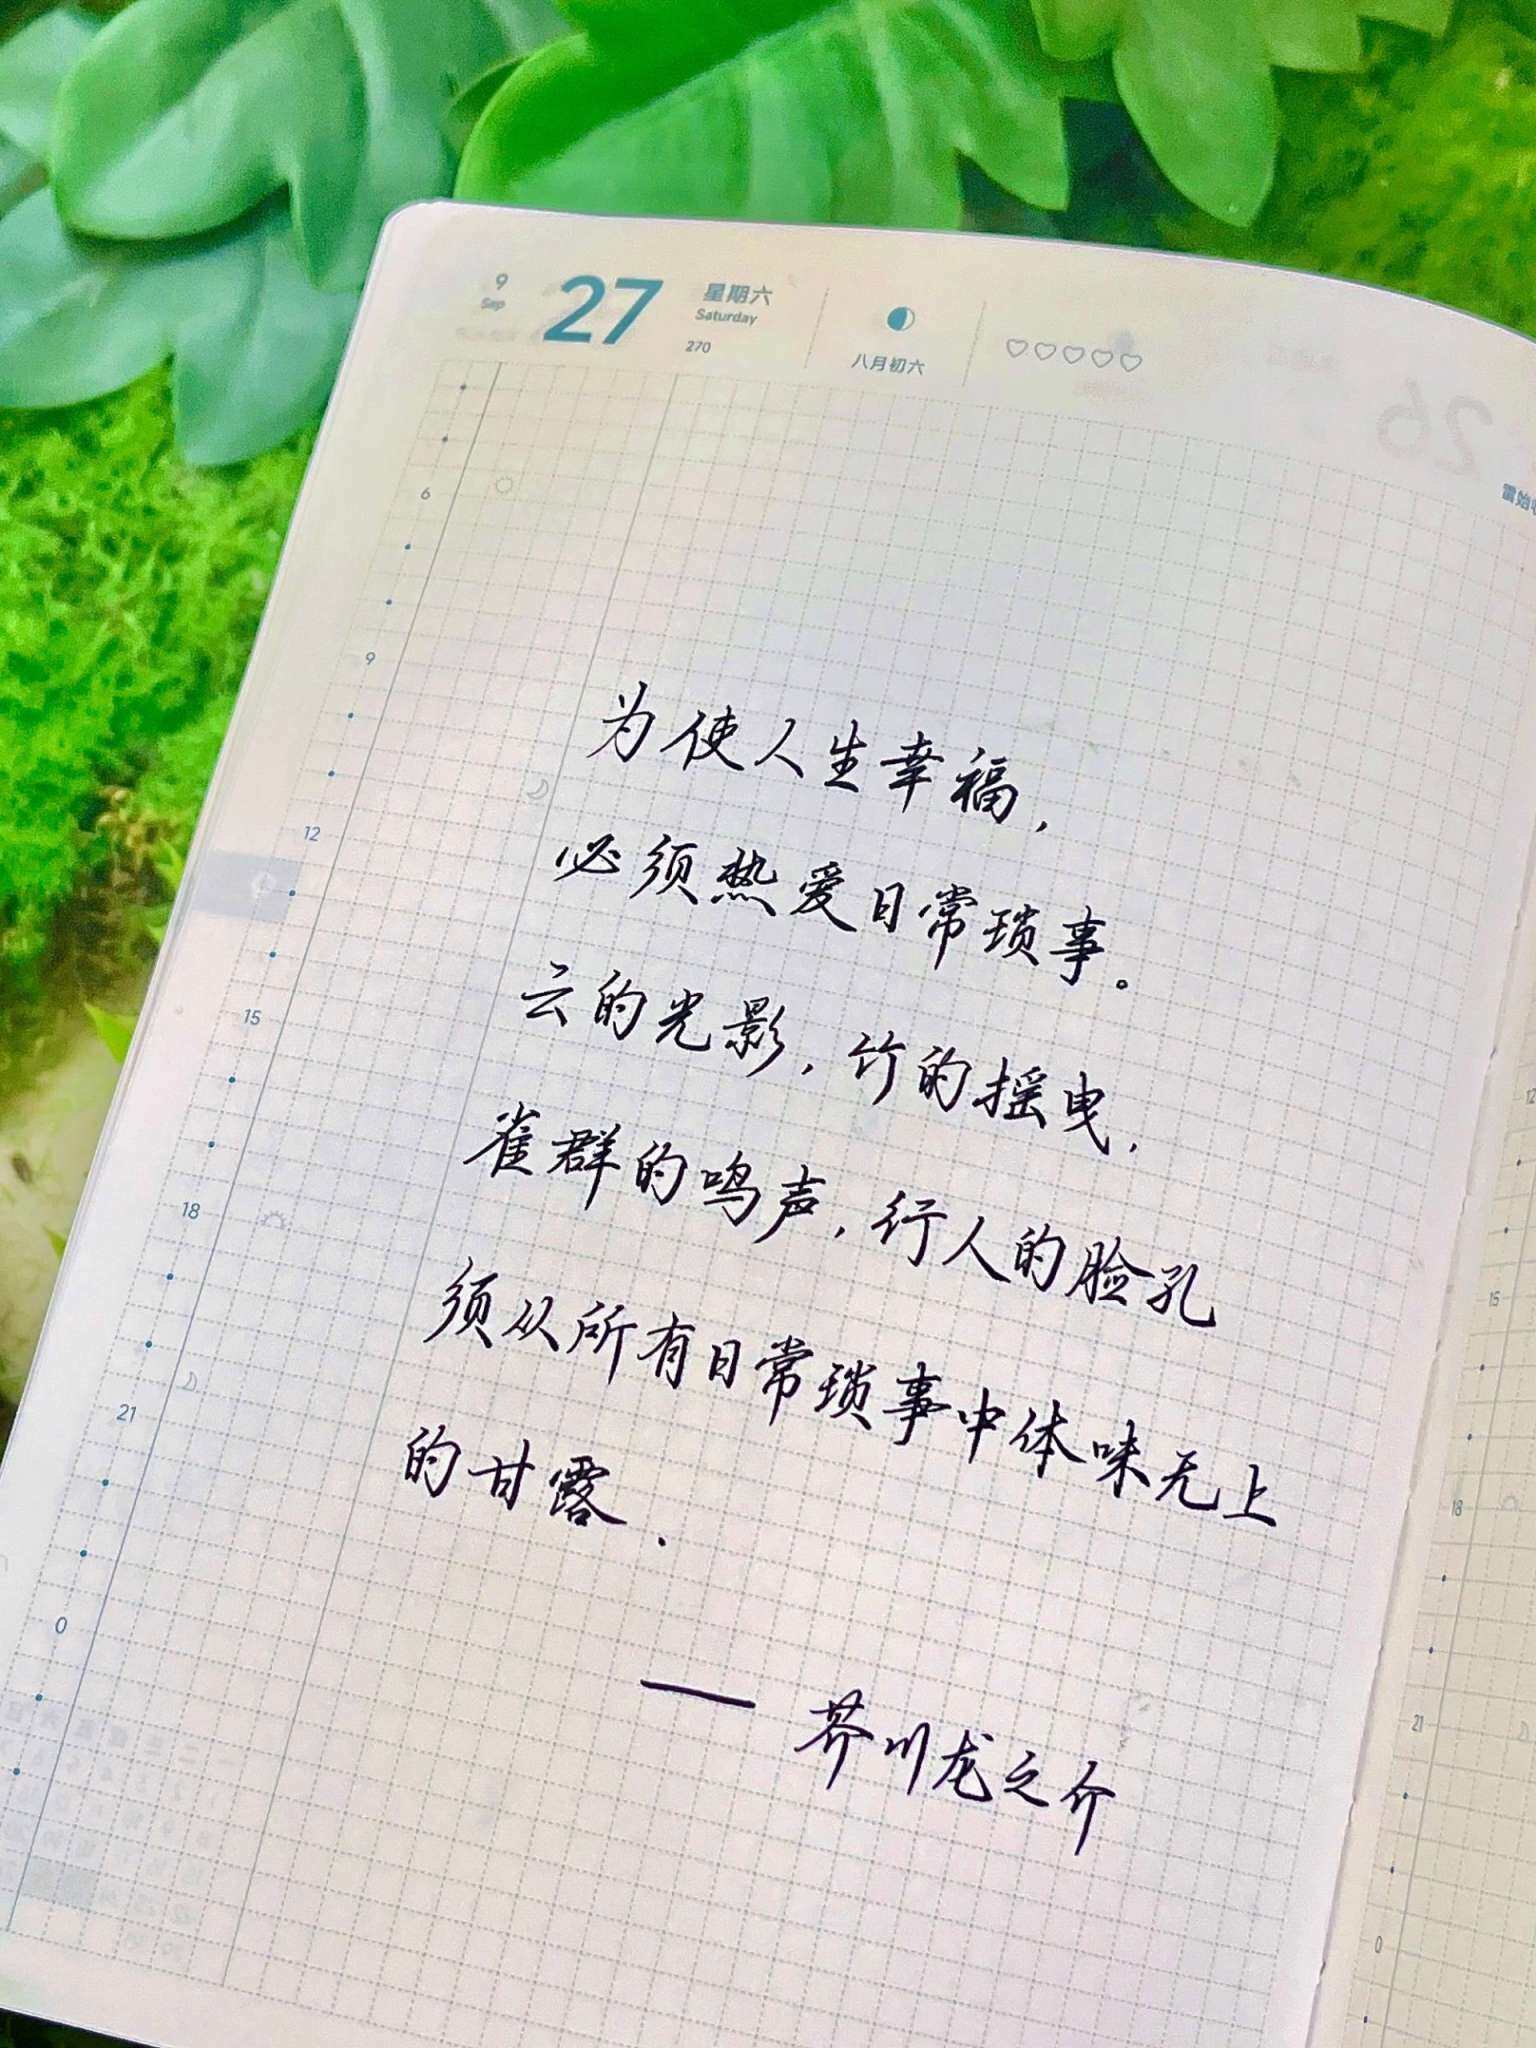 9
Sep
27
星期六
Saturday
270
八月初六
26
6
9
12
15
18
21
0
为使人生幸福，
必须热爱日常琐事。
云的光影，竹的摇曳，
雀群的鸣声，行人的脸孔
须从所有日常琐事中体味无上
的甘露.
—— 芥川龙之介
12
15
18
21
0